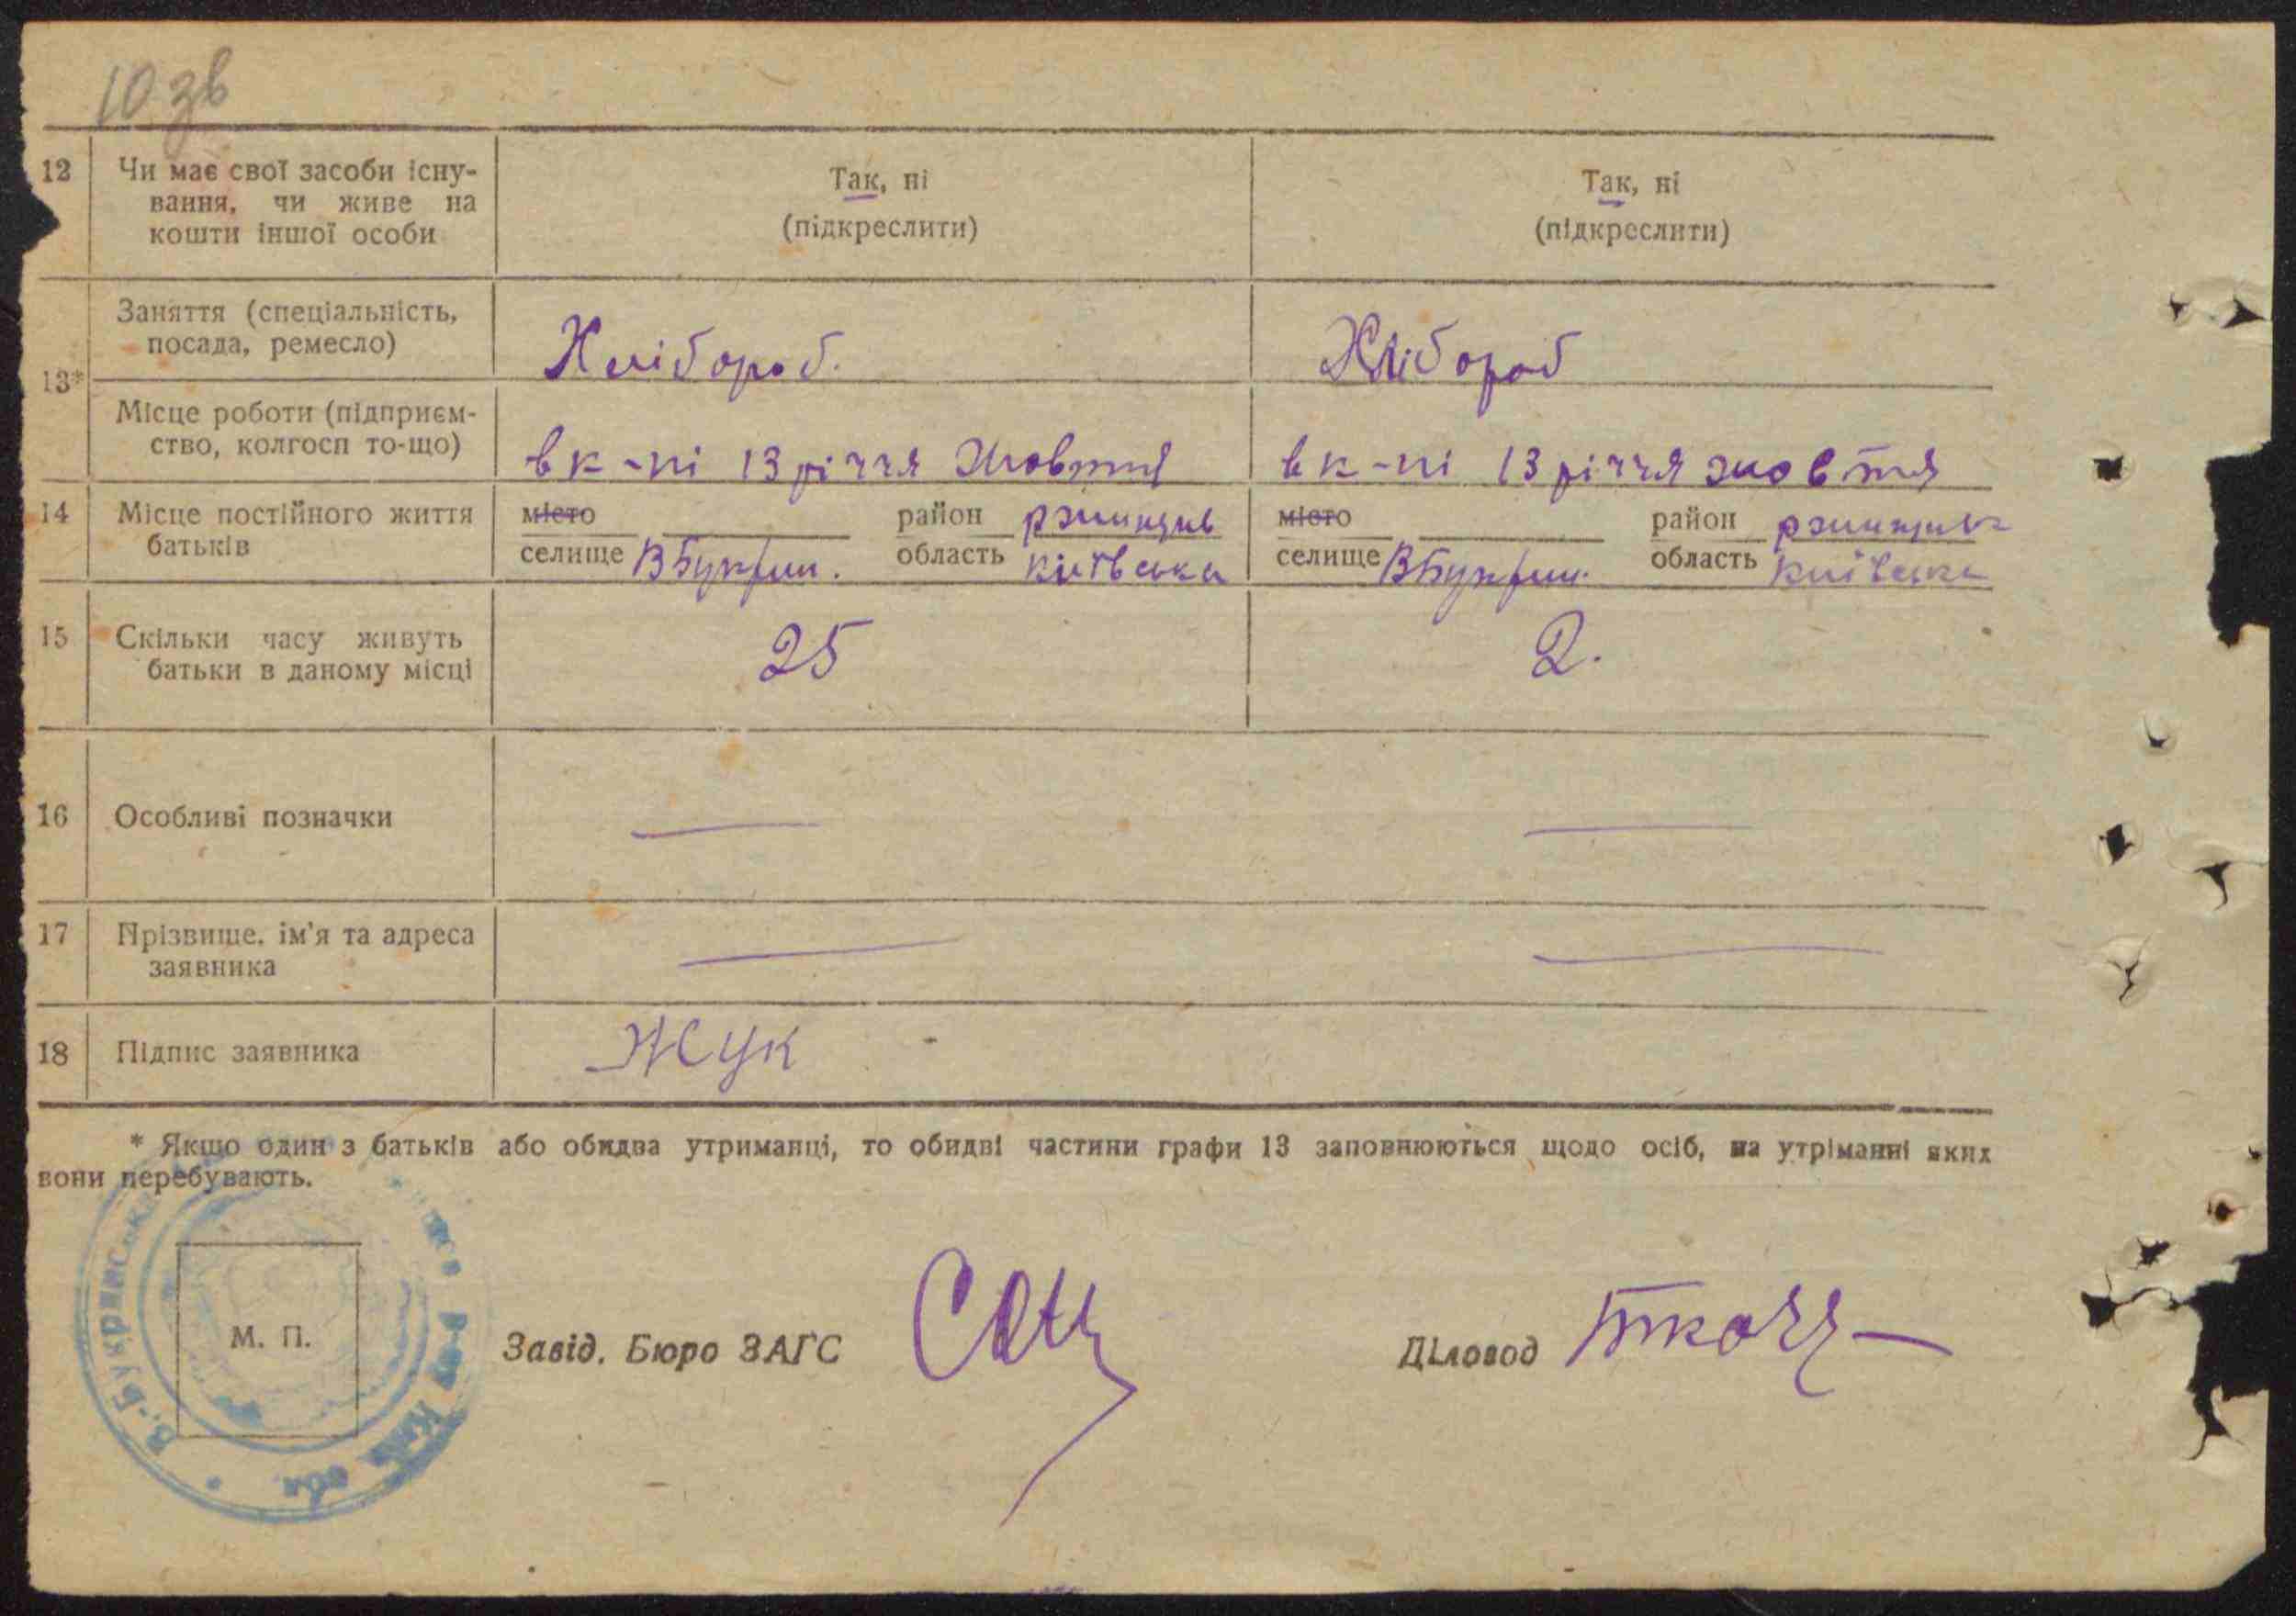 10 зв
12 Чи має свої засоби існу-
вання, чи живе на
кошти іншої особи
Так, ні
(підкреслити)
Так, ні
(підкреслити)
13*
Заняття (спеціальність,
посада, ремесло)
Хлібороб.
Хлібороб
Місце роботи (підприєм-
ство, колгосп то-що)
в к-пі 13 річчя Жовтня
в к-пі 13 річчя жовтня
14 Місце постійного життя
батьків
місто
селище В Букрин.
район ржищив
область київська
місто
селище В Букрин.
район ржищив
область київська
15 Скільки часу живуть
батьки в даному місці
25
2.
16 Особливі позначки
17 Прізвище, ім'я та адреса
заявника
18 Підпис заявника
Жук
* Якщо один з батьків або обидва утриманці, то обидві частини графи 13 заповнюються щодо осіб, на утріманні яких
вони перебувають.
В.-Букринськ
р-ну Київ обл
М. П.
Завід. Бюро ЗАГС
Діловод Ткач